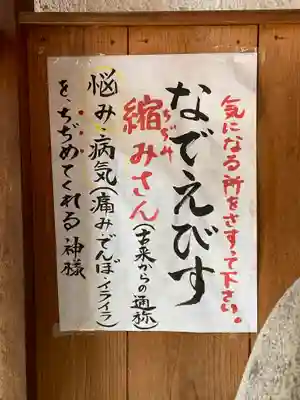 気になる所をさすって下さい。
なでえびす
縮みさん(古来からの通称)
ちぢみ
悩み・病気(痛み・でんぼ・イライラ)
を、ちぢめてくれる神様